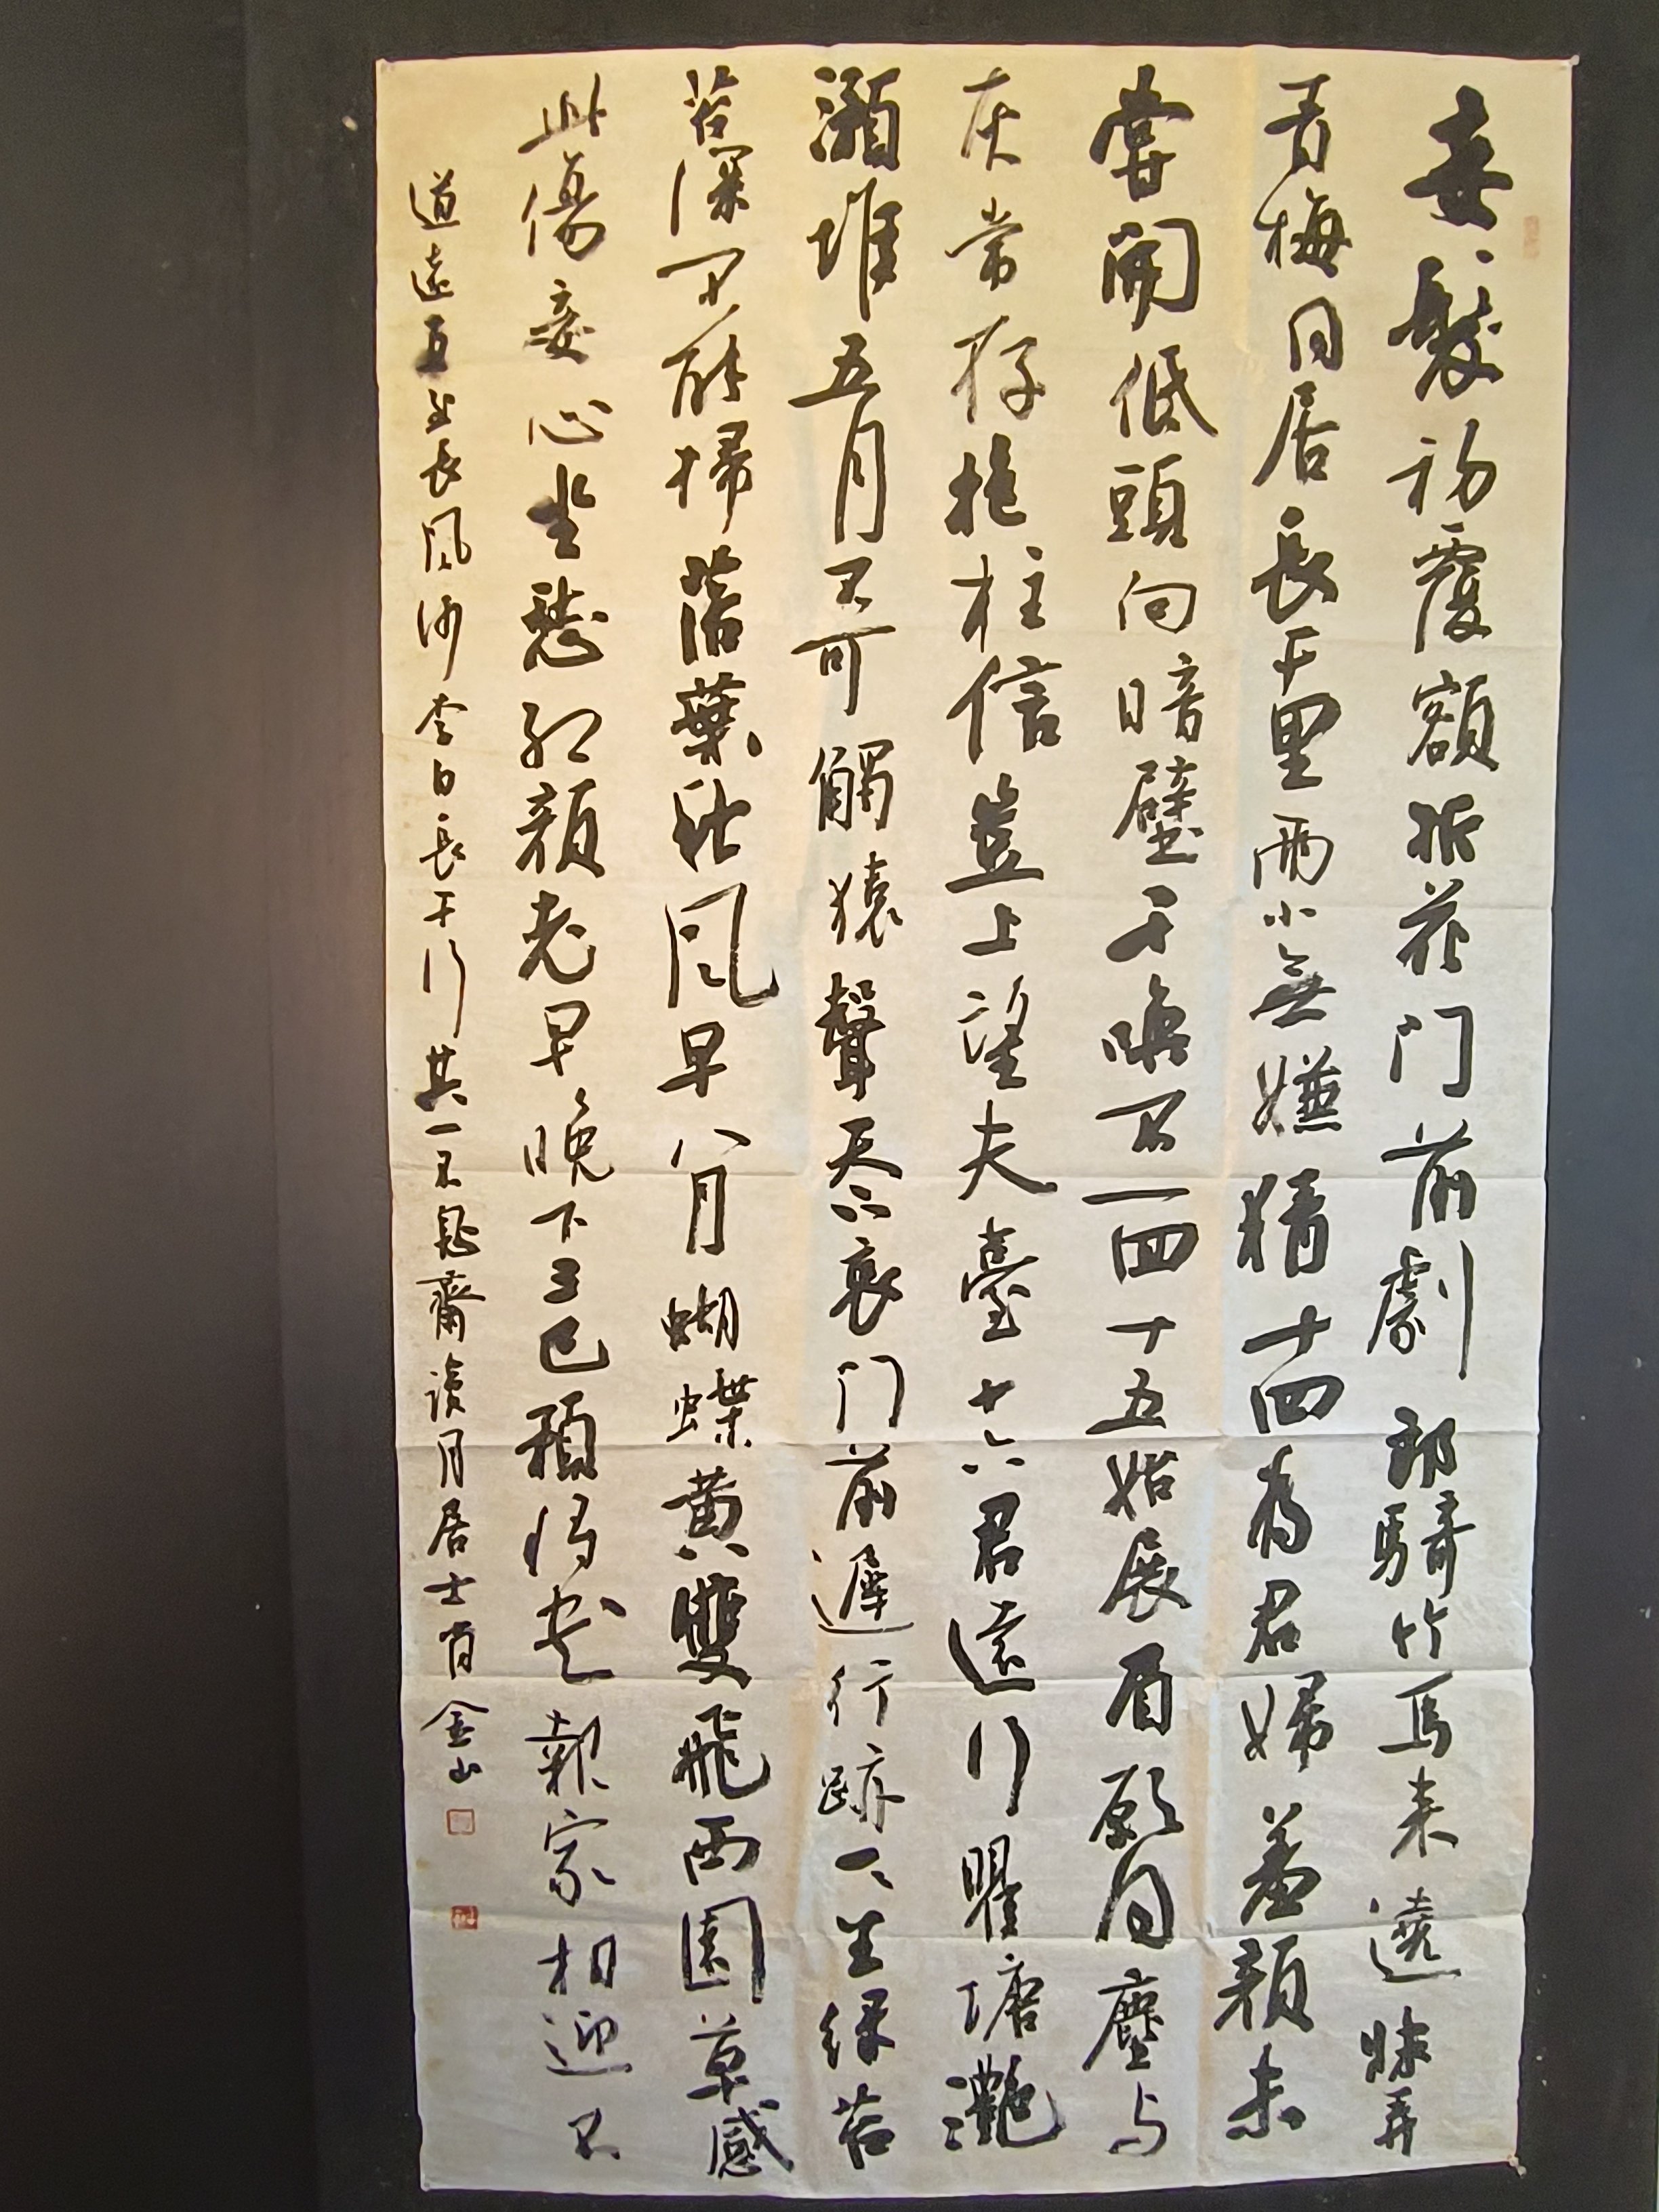 妾髮初覆額折花门前劇郎騎竹馬来遶牀弄
青梅同居長干里兩小無嫌猜十四為君婦羞顏未
嘗開低頭向暗壁千喚不一回十五始展眉願同塵与
灰常存抱柱信豈上望夫臺十六君遠行瞿塘灔
澦堆五月不可觸猿聲天上哀门前遲行跡一々生绿苔
苔深不能掃落葉秋風早八月蝴蝶黄雙飛西園草感
此傷妾心坐愁红顏老早晚下三巴預将書報家相迎不
道遠直至長風沙李白長干行其一齋读月居士肖金山